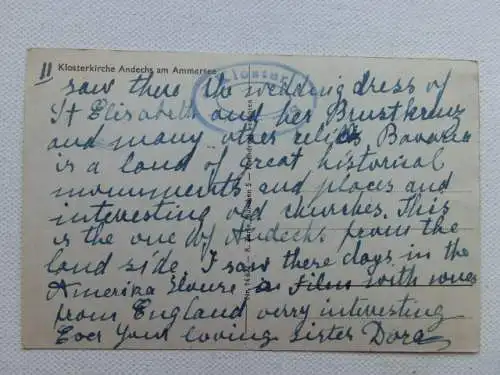 II
Klosterkirche Andechs am Ammersee
Kloster
saw there the wedding dress of
St Elisabeth and her Brustkreuz
and many other relics Bavaria
is a land of great historical
monuments and places and
interesting old churches. This
is the one of Andechs from the
land side. I saw these days in the
Amerika House a Film with views
from England verry interesting
Ever Your loving sister Dora